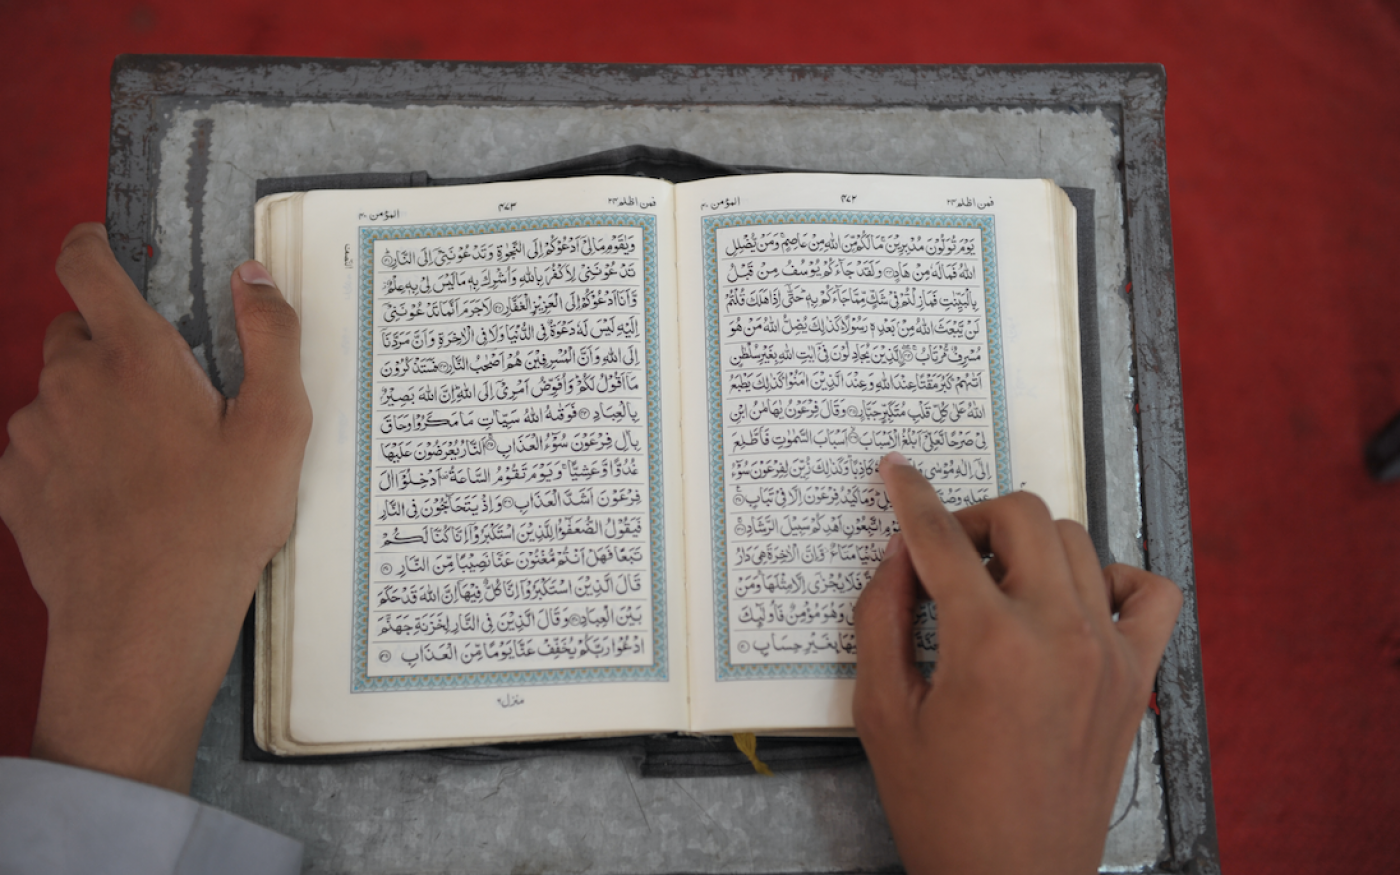 فمن اظلم ٢٤ ٤٧٢ المؤمن ٤٠
يَوْمَ تُوَلُّوْنَ مُدْبِرِيْنَ مَا لَكُمْ مِّنَ اللهِ مِنْ عَاصِمٍ وَمَنْ يُّضْلِلِ
اللهُ فَمَا لَهٗ مِنْ هَادٍ ٣٣ وَلَقَدْ جَآءَكُمْ يُوْسُفُ مِنْ قَبْلُ
بِالْبَيِّنٰتِ فَمَا زِلْتُمْ فِيْ شَكٍّ مِّمَّا جَآءَكُمْ بِهٖ حَتّٰٓى اِذَا هَلَكَ قُلْتُمْ
لَنْ يَّبْعَثَ اللهُ مِنْۢ بَعْدِهٖ رَسُوْلًا كَذٰلِكَ يُضِلُّ اللهُ مَنْ هُوَ
مُسْرِفٌ مُّرْتَابٌ ٣٤ الَّذِيْنَ يُجَادِلُوْنَ فِيْٓ اٰيٰتِ اللهِ بِغَيْرِ سُلْطٰنٍ
اَتٰىهُمْ كَبُرَ مَقْتًا عِنْدَ اللهِ وَعِنْدَ الَّذِيْنَ اٰمَنُوْا كَذٰلِكَ يَطْبَعُ
اللهُ عَلٰى كُلِّ قَلْبِ مُتَكَبِّرٍ جَبَّارٍ ٣٥ وَقَالَ فِرْعَوْنُ يٰهَامٰنُ ابْنِ
لِيْ صَرْحًا لَّعَلِّيْٓ اَبْلُغُ الْاَسْبَابَ ٣٦ اَسْبَابَ السَّمٰوٰتِ فَاَطَّلِعَ
اِلٰٓى اِلٰهِ مُوْسٰى كَاذِبًا وَكَذٰلِكَ زُيِّنَ لِفِرْعَوْنَ سُوْٓءُ
عَمَلِهٖ وَمَا كَيْدُ فِرْعَوْنَ اِلَّا فِيْ تَبَابٍ ٣٧
اتَّبِعُوْنِ اَهْدِكُمْ سَبِيْلَ الرَّشَادِ ٣٨
الدُّنْيَا مَتَاعٌ وَّاِنَّ الْاٰخِرَةَ هِيَ دَارُ
فَلَا يُجْزٰٓى اِلَّا مِثْلَهَا وَمَنْ
وَهُوَ مُؤْمِنٌ فَاُولٰٓئِكَ
بِغَيْرِ حِسَابٍ ٤٠
فمن اظلم ٢٤ ٤٧٣ المؤمن ٤٠
وَيٰقَوْمِ مَا لِيْٓ اَدْعُوْكُمْ اِلَى النَّجٰوةِ وَتَدْعُوْنَنِيْٓ اِلَى النَّارِ ٤١
تَدْعُوْنَنِيْ لِاَكْفُرَ بِاللهِ وَاُشْرِكَ بِهٖ مَا لَيْسَ لِيْ بِهٖ عِلْمٌ
وَّاَنَا اَدْعُوْكُمْ اِلَى الْعَزِيْزِ الْغَفَّارِ ٤٢ لَا جَرَمَ اَنَّمَا تَدْعُوْنَنِيْٓ
اِلَيْهِ لَيْسَ لَهٗ دَعْوَةٌ فِي الدُّنْيَا وَلَا فِي الْاٰخِرَةِ وَاَنَّ مَرَدَّنَآ
اِلَى اللهِ وَاَنَّ الْمُسْرِفِيْنَ هُمْ اَصْحٰبُ النَّارِ ٤٣ فَسَتَذْكُرُوْنَ
مَآ اَقُوْلُ لَكُمْ وَاُفَوِّضُ اَمْرِيْٓ اِلَى اللهِ اِنَّ اللهَ بَصِيْرٌۢ
بِالْعِبَادِ ٤٤ فَوَقٰىهُ اللهُ سَيِّاٰتِ مَا مَكَرُوْا وَحَاقَ
بِاٰلِ فِرْعَوْنَ سُوْٓءُ الْعَذَابِ ٤٥ اَلنَّارُ يُعْرَضُوْنَ عَلَيْهَا
غُدُوًّا وَّعَشِيًّا وَيَوْمَ تَقُوْمُ السَّاعَةُ اَدْخِلُوْٓا اٰلَ
فِرْعَوْنَ اَشَدَّ الْعَذَابِ ٤٦ وَاِذْ يَتَحَآجُّوْنَ فِي النَّارِ
فَيَقُوْلُ الضُّعَفٰٓؤُا لِلَّذِيْنَ اسْتَكْبَرُوْٓا اِنَّا كُنَّا لَكُمْ
تَبَعًا فَهَلْ اَنْتُمْ مُّغْنُوْنَ عَنَّا نَصِيْبًا مِّنَ النَّارِ ٤٧
قَالَ الَّذِيْنَ اسْتَكْبَرُوْٓا اِنَّا كُلٌّ فِيْهَآ اِنَّ اللهَ قَدْ حَكَمَ
بَيْنَ الْعِبَادِ ٤٨ وَقَالَ الَّذِيْنَ فِي النَّارِ لِخَزَنَةِ جَهَنَّمَ
ادْعُوْا رَبَّكُمْ يُخَفِّفْ عَنَّا يَوْمًا مِّنَ الْعَذَابِ ٤٩
منزل ٦